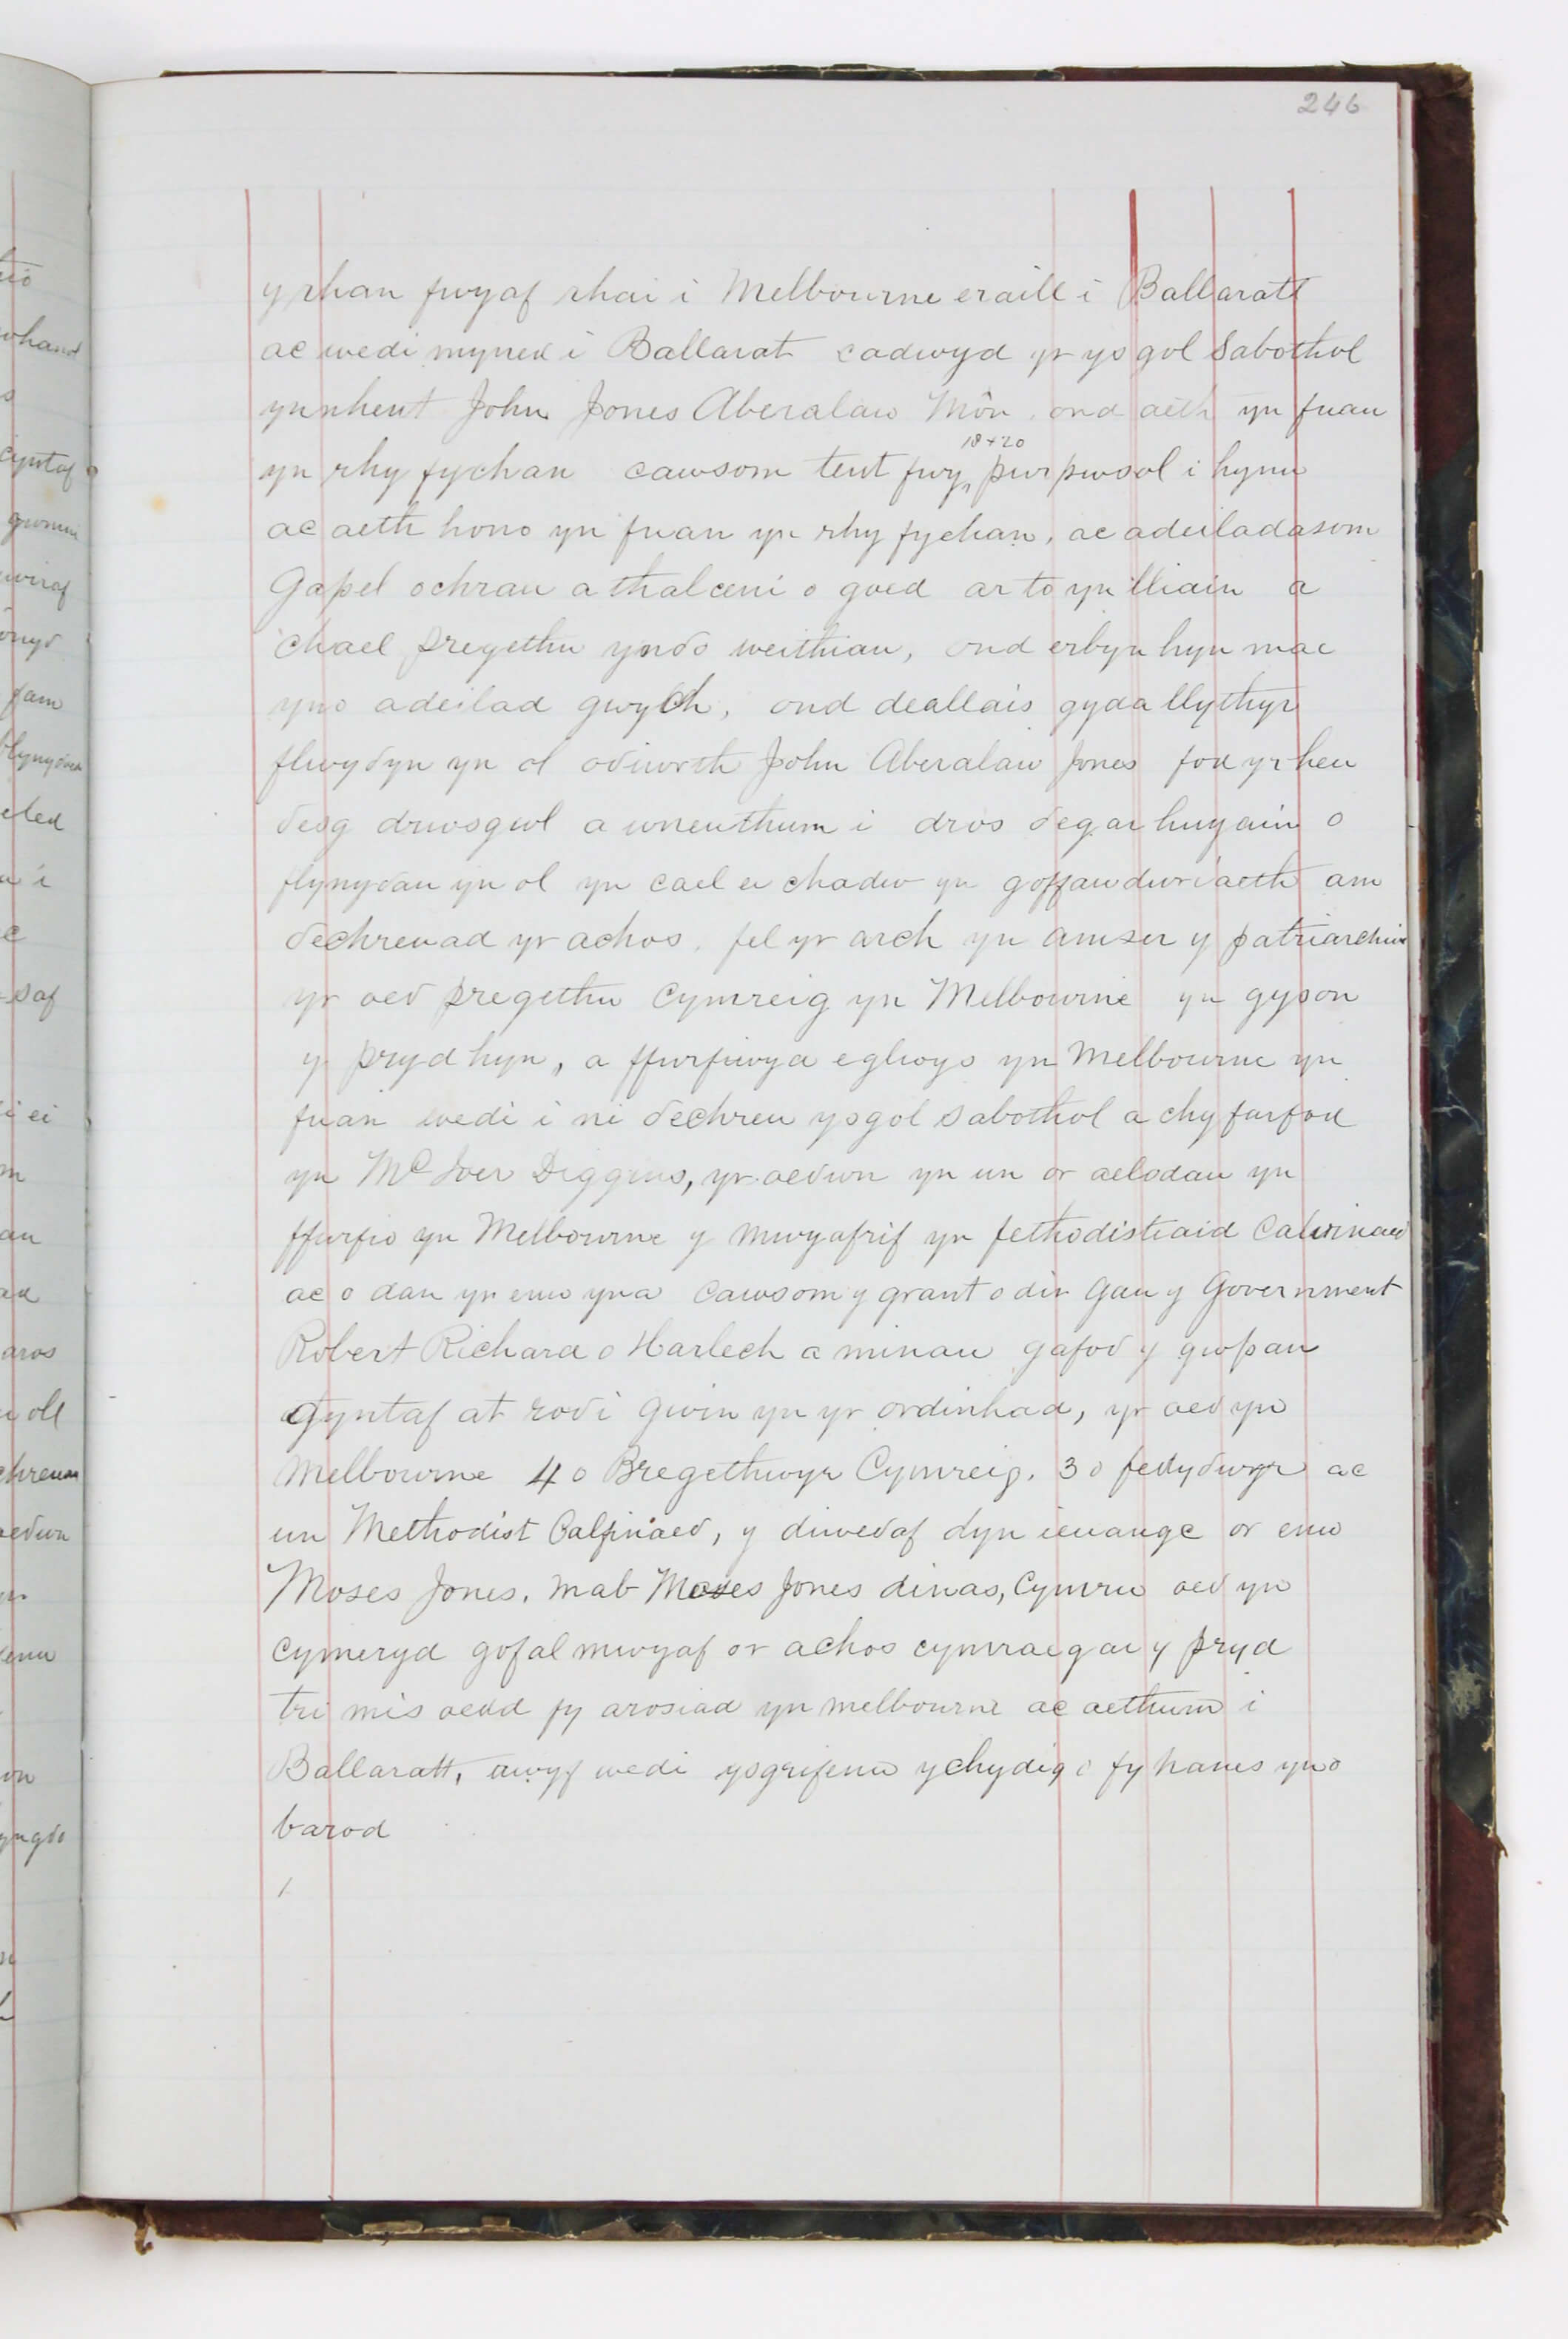 246
y rhan fwyaf rhai i Melbourne eraill i Ballaratt
ac wedi myned i Ballarat cadwyd yr ysgol Sabothol
ynnhent John Jones Aberalaw Môn, ond aeth yn fuan
18+20
yn rhy fychan cawsom tent fwy, purpwsol i hynu
ac aeth hono yn fuan yn rhy fychan, ac adeiladasom
Gapel ochrau a thalceni o goed ar to yn lliain a
chael pregethu yndo weithiau, ond erbyn hyn mae
yno adeilad gwych, ond deallais gyda llythyr
flwyδyn yn ol oδiwrth John Aberalaw Jones fod yr hen
δesg drwsgwl a wneuthum i dros δeg ar hugain o
flynyδau yn ol yn cael ei chadw yn goffawdwriaeth am
δechreuad yr achos, fel yr arch yn amser y patriarchiu
yr oeδ pregethu Cymreig yn Melbourne yn gyson
y pryd hyn, a ffurfiwyd eglwys yn Melbourne yn
fuan wedi i ni δechreu ysgol sabothol a chyfarfod
yn Mc Iver Diggins, yr oeδwn yn un or aelodau yn
ffurfio yn Melbourne y mwyafrif yn fethodistiaid Calvinaeδ
ac o dan yr enw yna cawsom y grant o dir gan y Government
Robert Richard o Harlech a minau gafoδ y gwpan
gyntaf at roδi gwin yn yr ordinhad, yr oeδ yn
Melbourne 4 o Bregethwyr Cymreig. 3 o fedyδwyr ac
un Methodist Calfinaeδ, y diweδaf dyn ieuange or enw
Moses Jones. mab Moses Jones dinas, Cymru oeδ yn
cymeryd gofal mwyaf or achos cymraeg ar y pryd
tri mis oedd fy arosiad yn melbourne ac aethum i
Ballaratt, awyf wedi ysgrifenu ychydig o fy hanes yno
barod